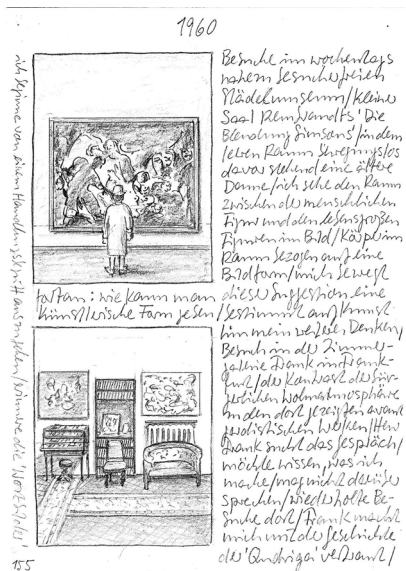 1960
Besuche im wochentags
nahezu besucherfreien
Städelmuseum/kleiner
Saal Rembrandts 'Die
Blendung Simsons'/in dem
leeren Raum bewegungslos
davor stehend eine ältere
Dame/ich sehe den Raum
zwischen der menschlichen
Figur und den lebensgroßen
Figuren im Bild/Körper im
Raum bezogen auf eine
Bildform/mich bewegt
fortan: wie kann man dieser Suggestion eine
künstlerische Form geben/bestimmt auf
hin mein weiteres Denken/
Besuch in der Zimmer-
galerie Franck in Frank-
furt/der Kontrast der bür-
gerlichen Wohnatmosphäre
zu den dort gezeigten avant
gardistischen Werken/Herr
Franck sucht das Gespräch/
möchte wissen, was ich
mache/mag nicht darüber
sprechen/wiederholte Be-
suche dort/Franck macht
mich mit der Geschichte
der 'Quadriga' vertraut/
ich beginne von einem Handlungsbegriff auszugehen/ die 'Wortbilder'
155